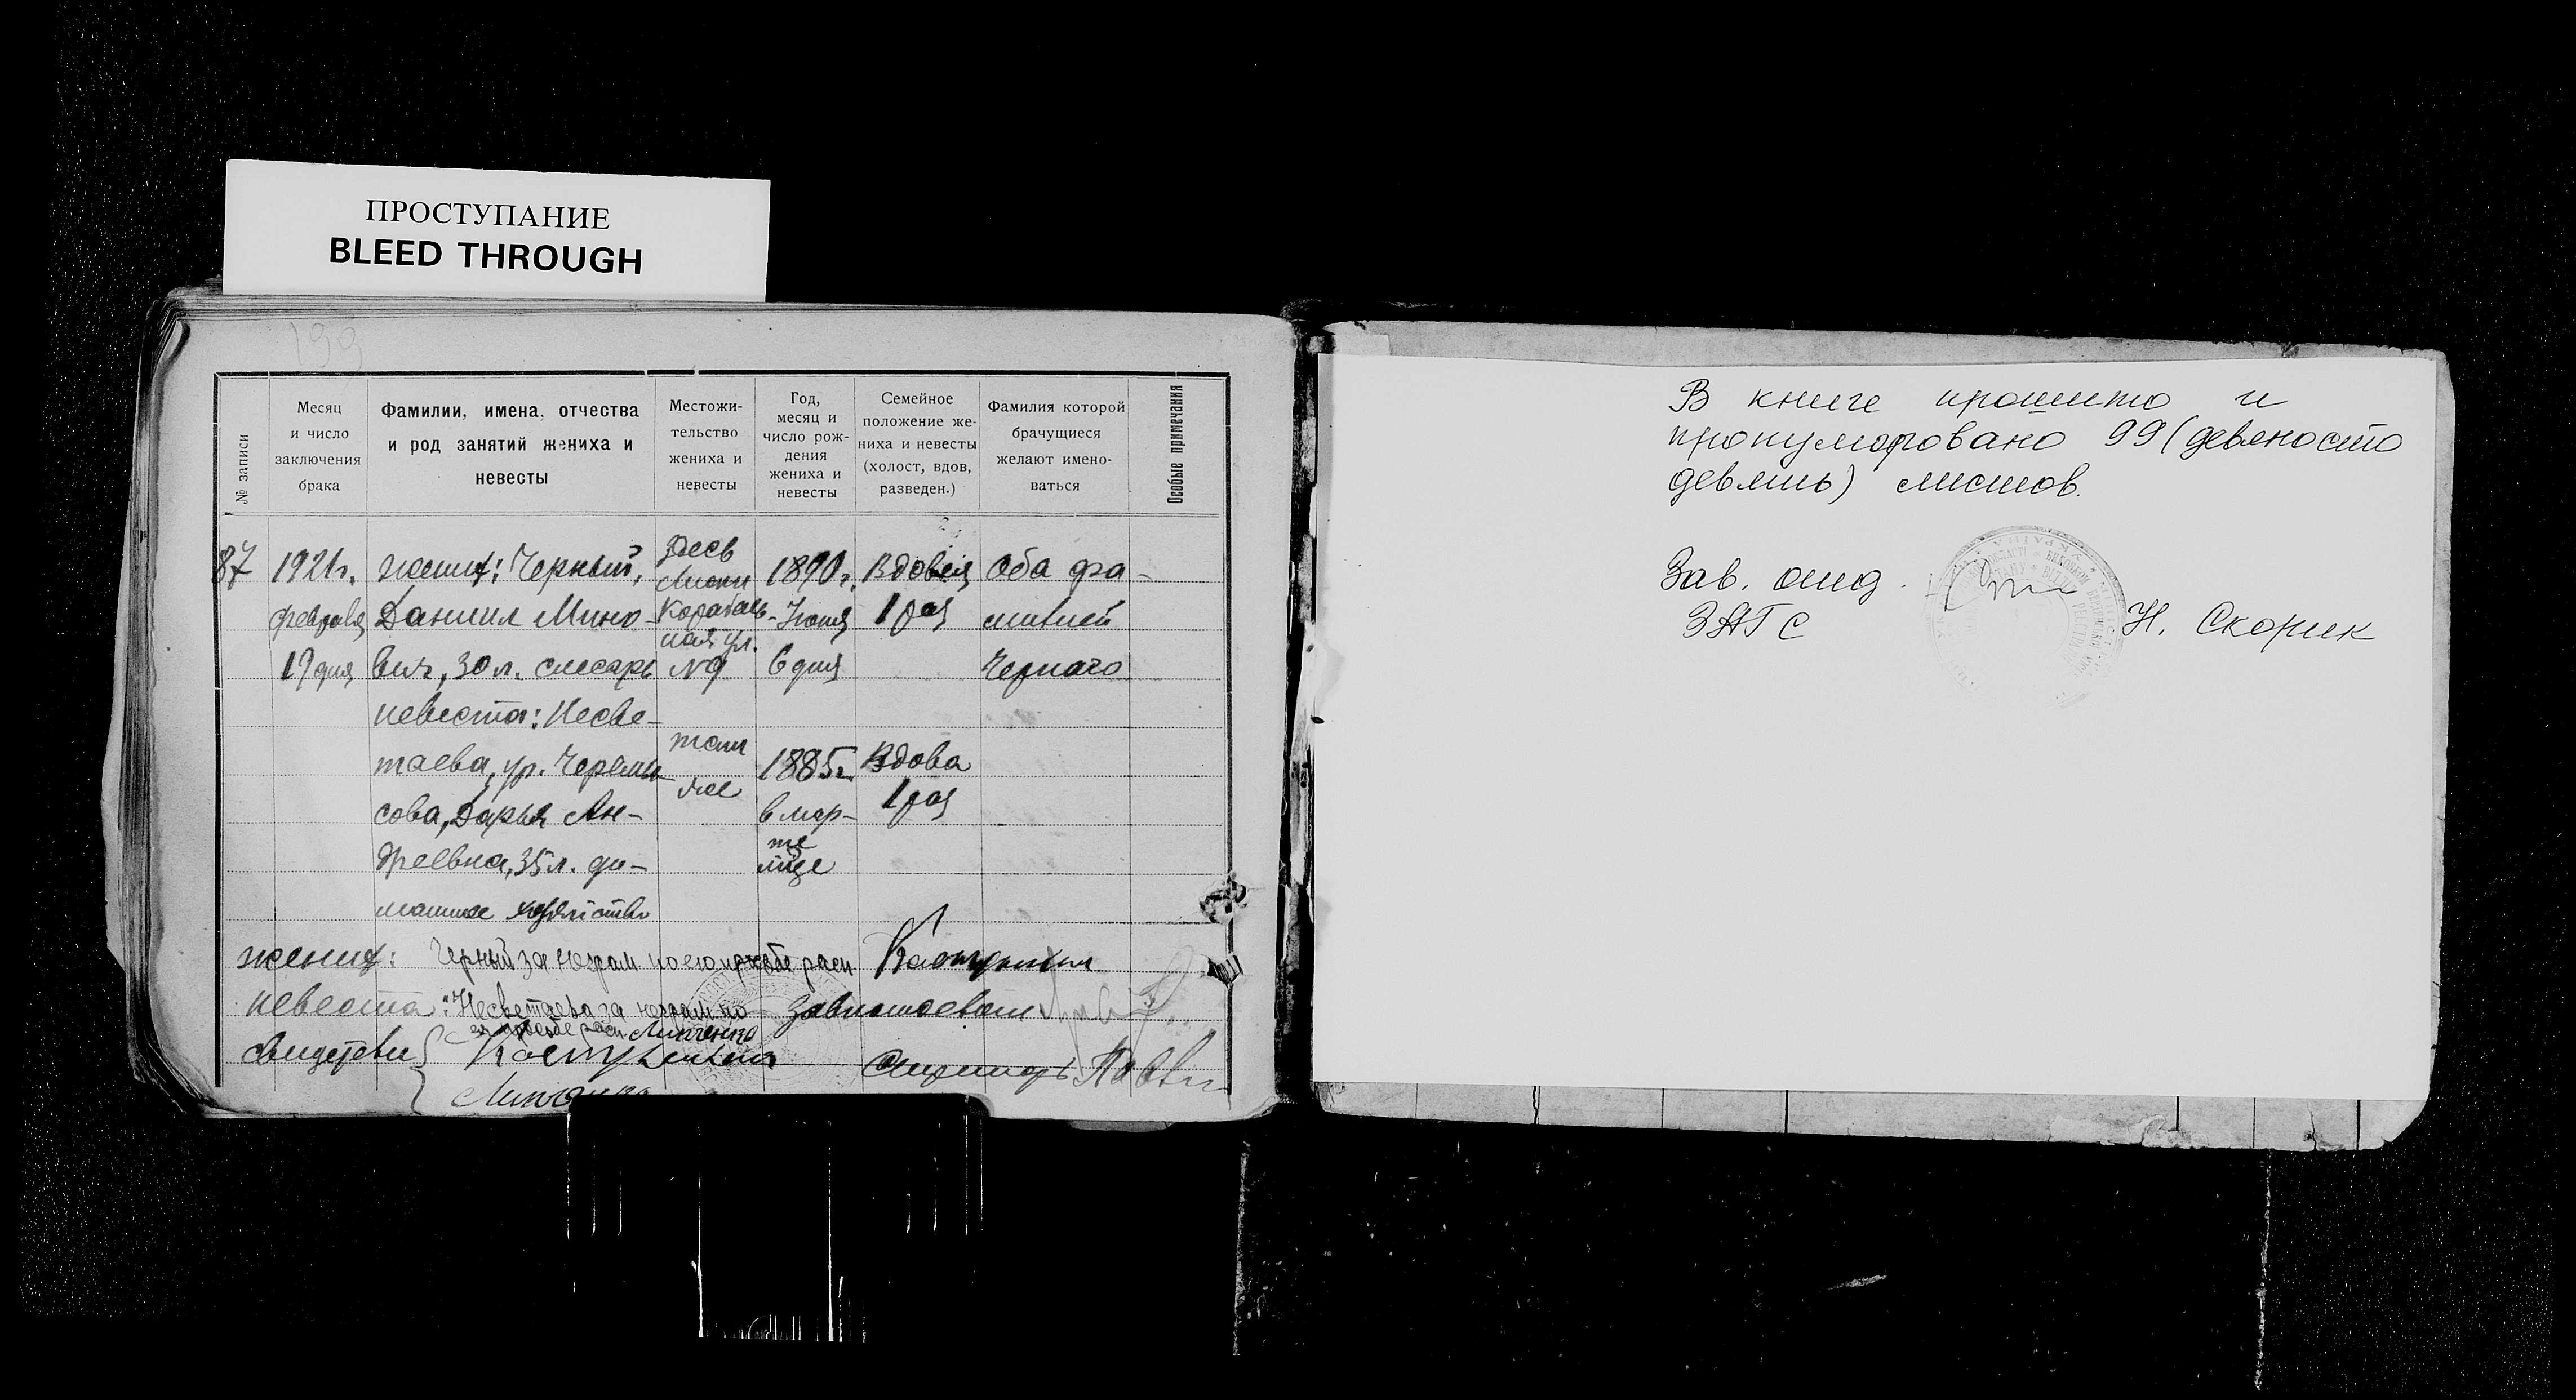 ПРОСТУПАНИЕ
BLEED THROUGH
199
№ записи
Месяц и число заключения брака
Фамилии, имена, отчества и род занятий жениха и невесты
Местожи-тельство жениха и невесты
Год, месяц и число рож-дения жениха и невесты
Семейное положение же-ниха и невесты (холост, вдов, разведен.)
Фамилия которой брачущиеся желают имено-ваться
Особые примечания
87
1921г.
февраля
19 дня
жених: Черный,
Даниил Мино-
вич, 30 л. слесарь
невеста: Несве-
таева, ур. Черемы-
сова, Дарья Ан-
дреевна, 35 л. до-
машнее хозяйство
здесь
Корабель-
ная ул.
№9
там
же
1890г.
Июня
6 дня
1885г.
в мар-
те
м-це
Вдовец
1 раз
Вдова
1 раз
Оба фа-
милией
Черного
жених: Черный за неграм по его просьбе расп
невеста: Несветаева за неграм. по
ея просьбе расп. Липченко
свидетели
Липченко
Завполоевать
В книге прошито и
пронумеровано 99 (девяносто
девять) листов.
Зав. отд.
ЗАГС
Н. Скорик